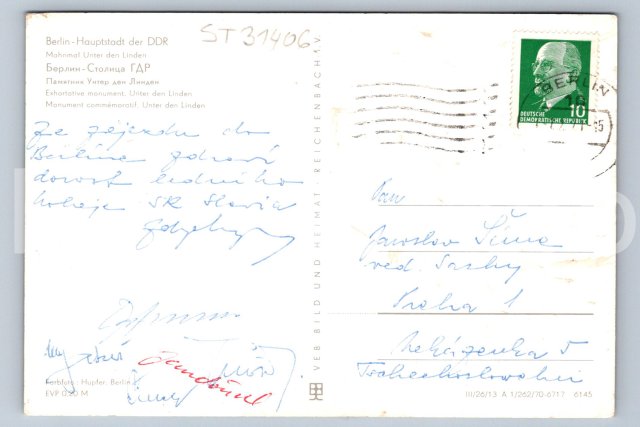 Berlin-Hauptstadt der DDR
Mahnmal Unter den Linden
Берлин-Столица ГДР
Памятник Унтер ден Линден
Exhortative monument, Unter den Linden
Monument commémoratif, Unter den Linden
ST 31406
Ze zájezdu do
Berlína zdraví
dorost ledního
hokeje SK Slavia
VEB BILD UND HEIMAT REICHENBACH i.V.
BERLIN
10
DEUTSCHE
DEMOKRATISCHE REPUBLIK
Pan
Jaroslav Šíma
ved.
Praha 1
Tschechoslowakei
Farbfoto: Hupfer, Berlin
EVP 0,20 M
III/26/13 A 1/262/70-6717 6145